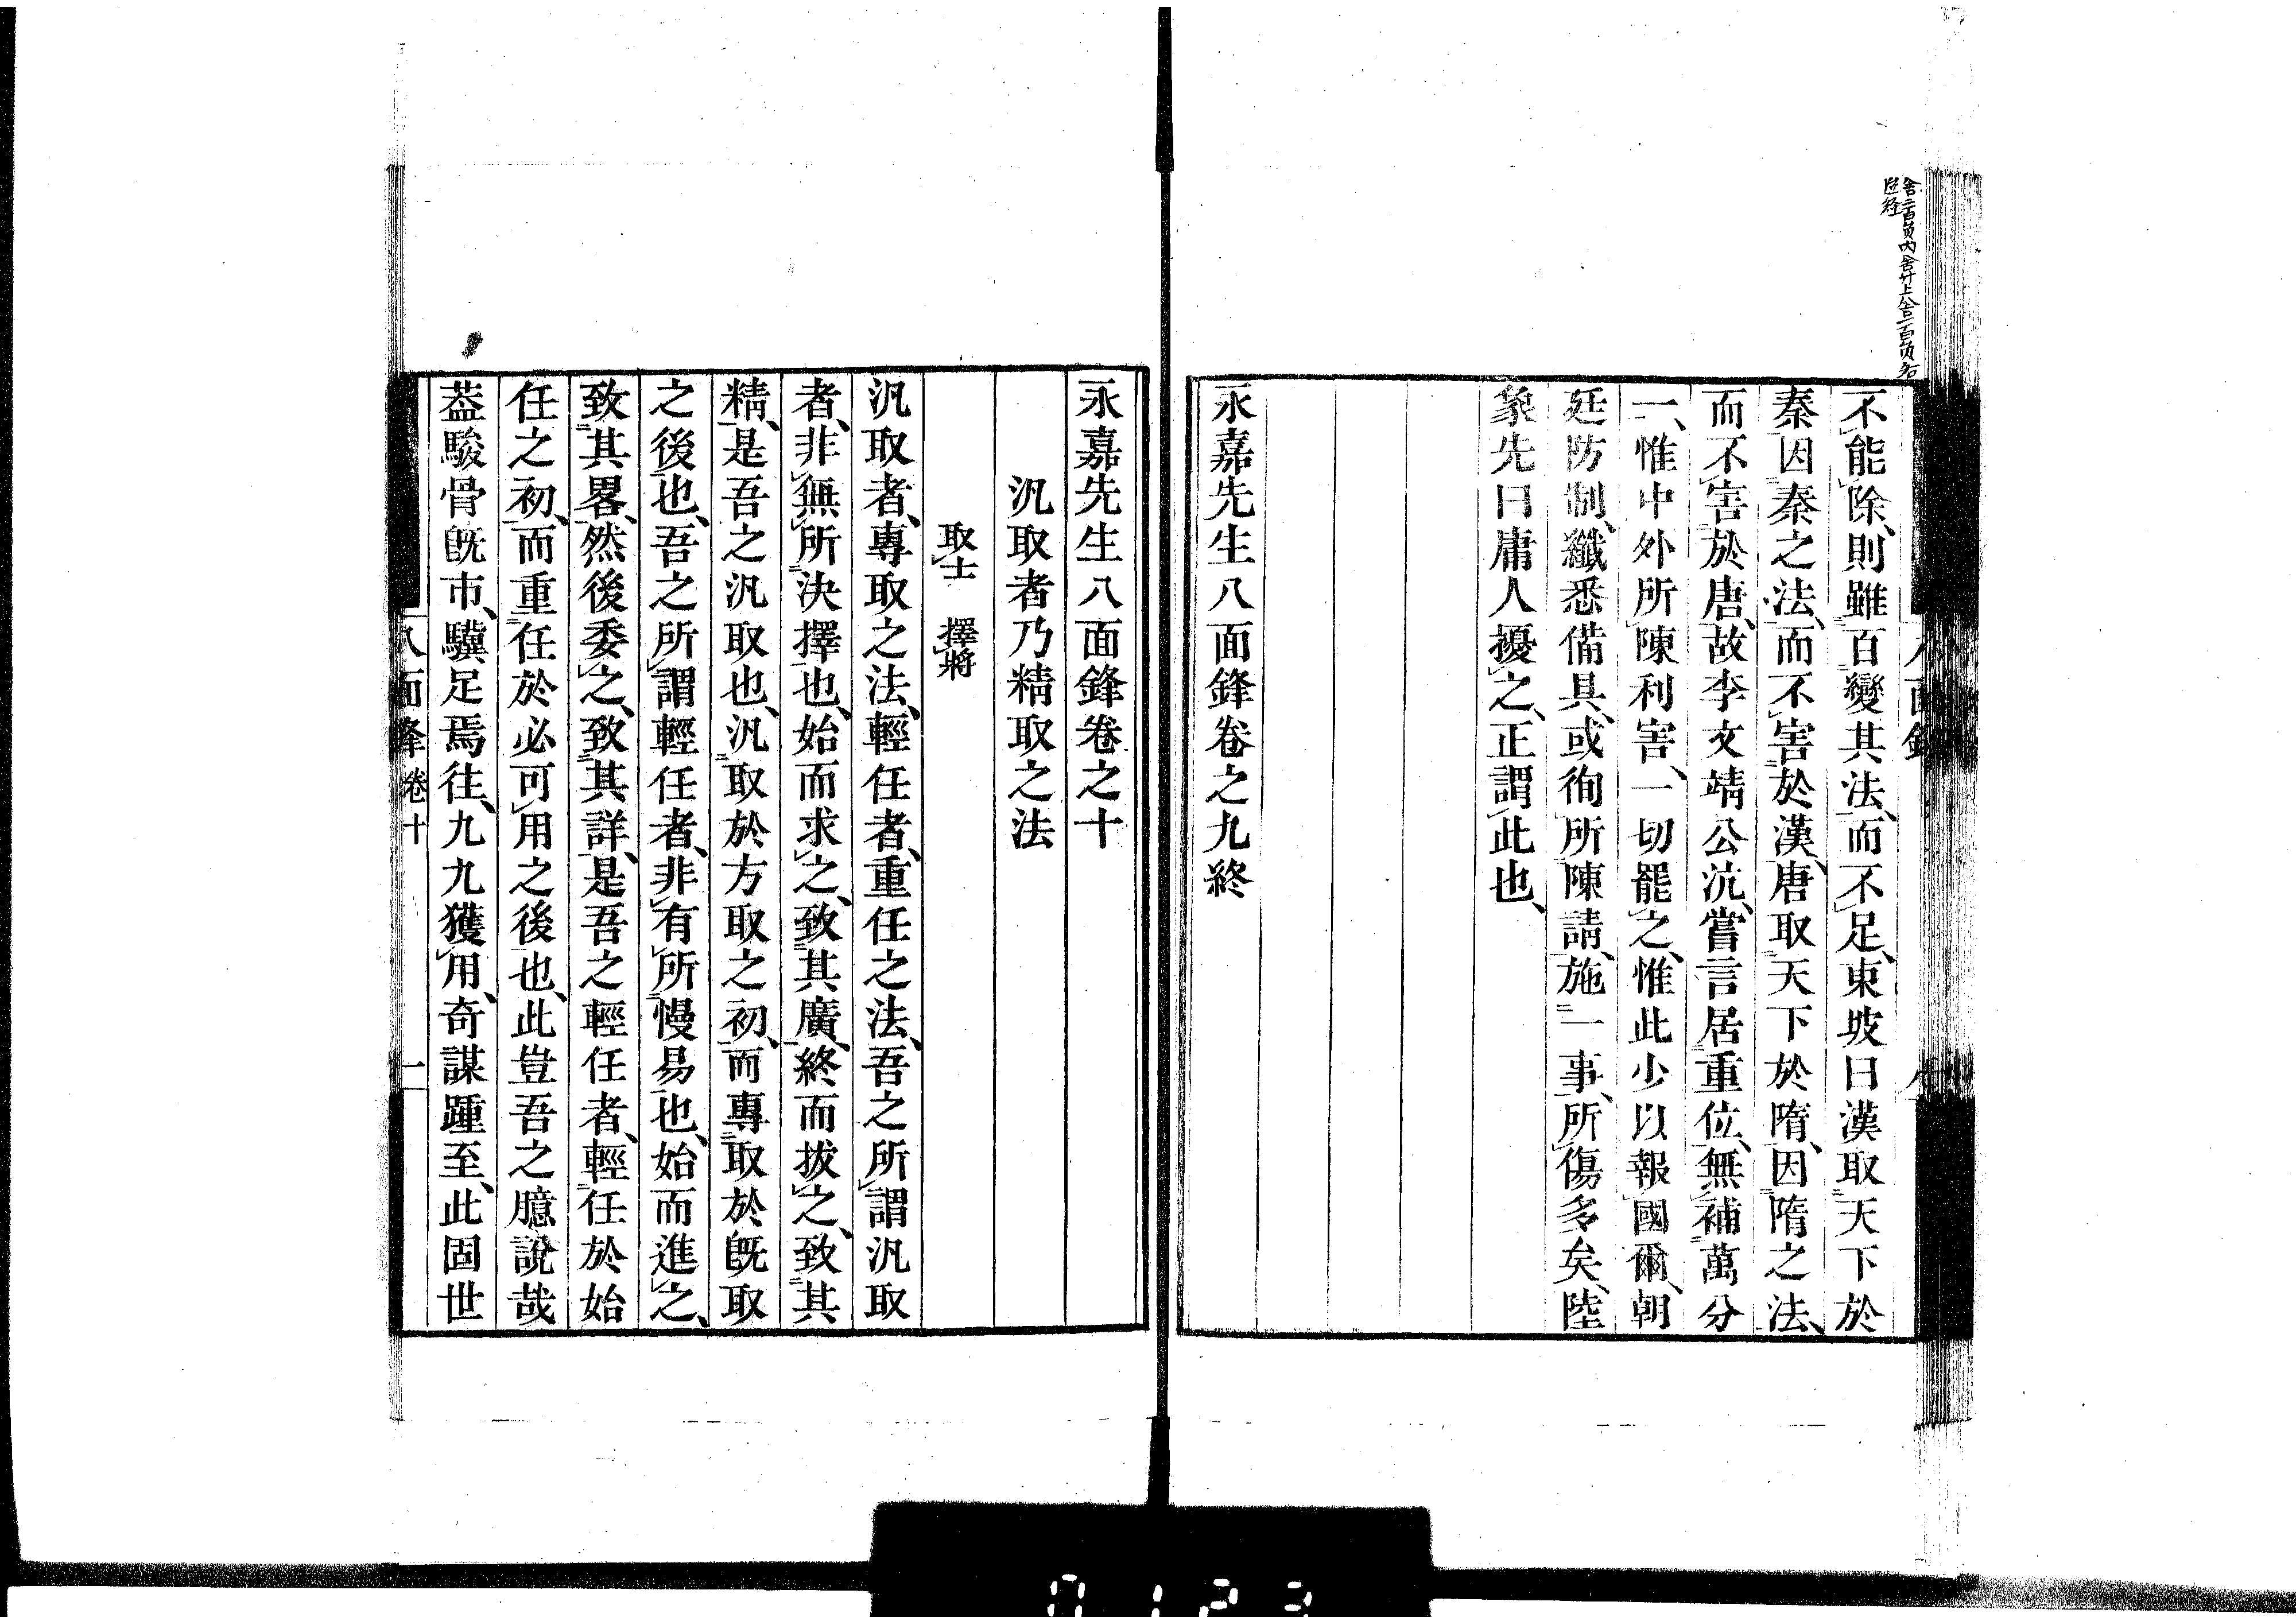 不能除、則雖百變其法、而不足、東坡曰漢取天下於
秦、因秦之法、而不害於漢、唐取天下於隋、因隋之法、
而不害於唐、故李文靖公沆、嘗言居重位、無補萬分
一、惟中外所陳利害、一切罷之、惟此少以報國爾、朝
廷防制、纖悉備具、或徇所陳請、施一事、所傷多矣、陸
象先曰庸人擾之、正謂此也、
永嘉先生八面鋒卷之九終
永嘉先生八面鋒卷之十
汎取者乃精取之法
取士 擇將
汎取者、專取之法、輕任者、重任之法、吾之所謂汎取
者、非無所決擇也、始而求之、致其廣、終而拔之、致其
精、是吾之汎取也、汎取於方取之初、而專取於既取
之後也、吾之所謂輕任者、非有所慢易也、始而進之、
致其畧、然後委之、致其詳、是吾之輕任者、輕任於始
任之初、而重任於必可用之後也、此豈吾之臆說哉
葢駿骨既市、驥足焉往、九九獲用、奇謀踵至、此固世
八面鋒 卷十 一
0123